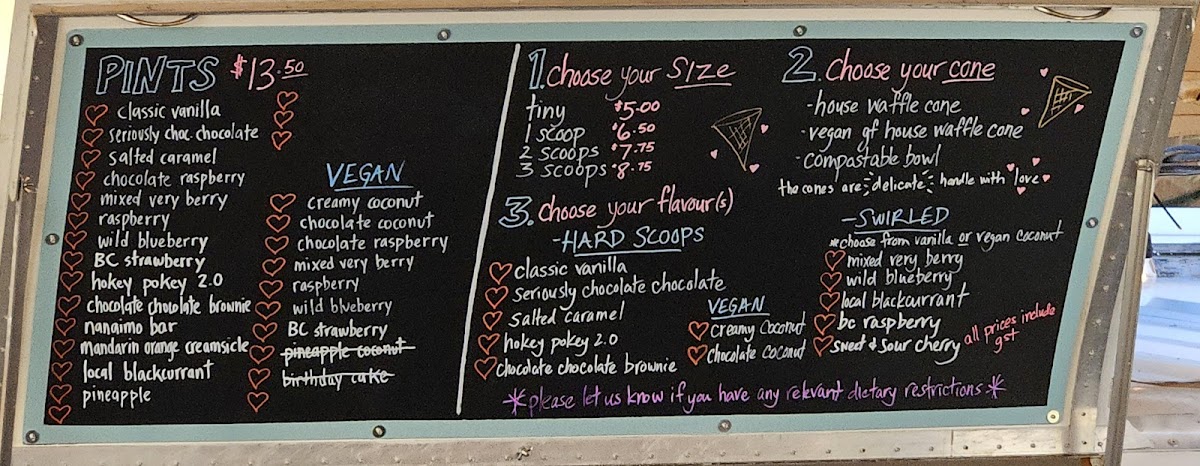 PINTS $13.50
classic vanilla
seriously choc. chocolate
salted caramel
chocolate raspberry
mixed very berry
raspberry
wild blueberry
BC strawberry
hokey pokey 2.0
chocolate chocolate brownie
nanaimo bar
mandarin orange creamsicle
local blackcurrant
pineapple
VEGAN
creamy coconut
chocolate coconut
chocolate raspberry
mixed very berry
raspberry
wild blueberry
BC strawberry
pineapple coconut
birthday cake
1. choose your SIZE
tiny $5.00
1 scoop $6.50
2 scoops $7.75
3 scoops $8.75
2. choose your cone
-house waffle cone
-vegan gf house waffle cone
-compastable bowl
the cones are delicate handle with love
3. choose your flavour(s)
-HARD SCOOPS
classic vanilla
seriously chocolate chocolate
salted caramel
hokey pokey 2.0
chocolate chocolate brownie
VEGAN
creamy coconut
chocolate coconut
-SWIRLED
*choose from vanilla or vegan coconut
mixed very berry
wild blueberry
local blackcurrant
bc raspberry
sweet & sour cherry
all prices include
gst
*please let us know if you have any relevant dietary restrictions*